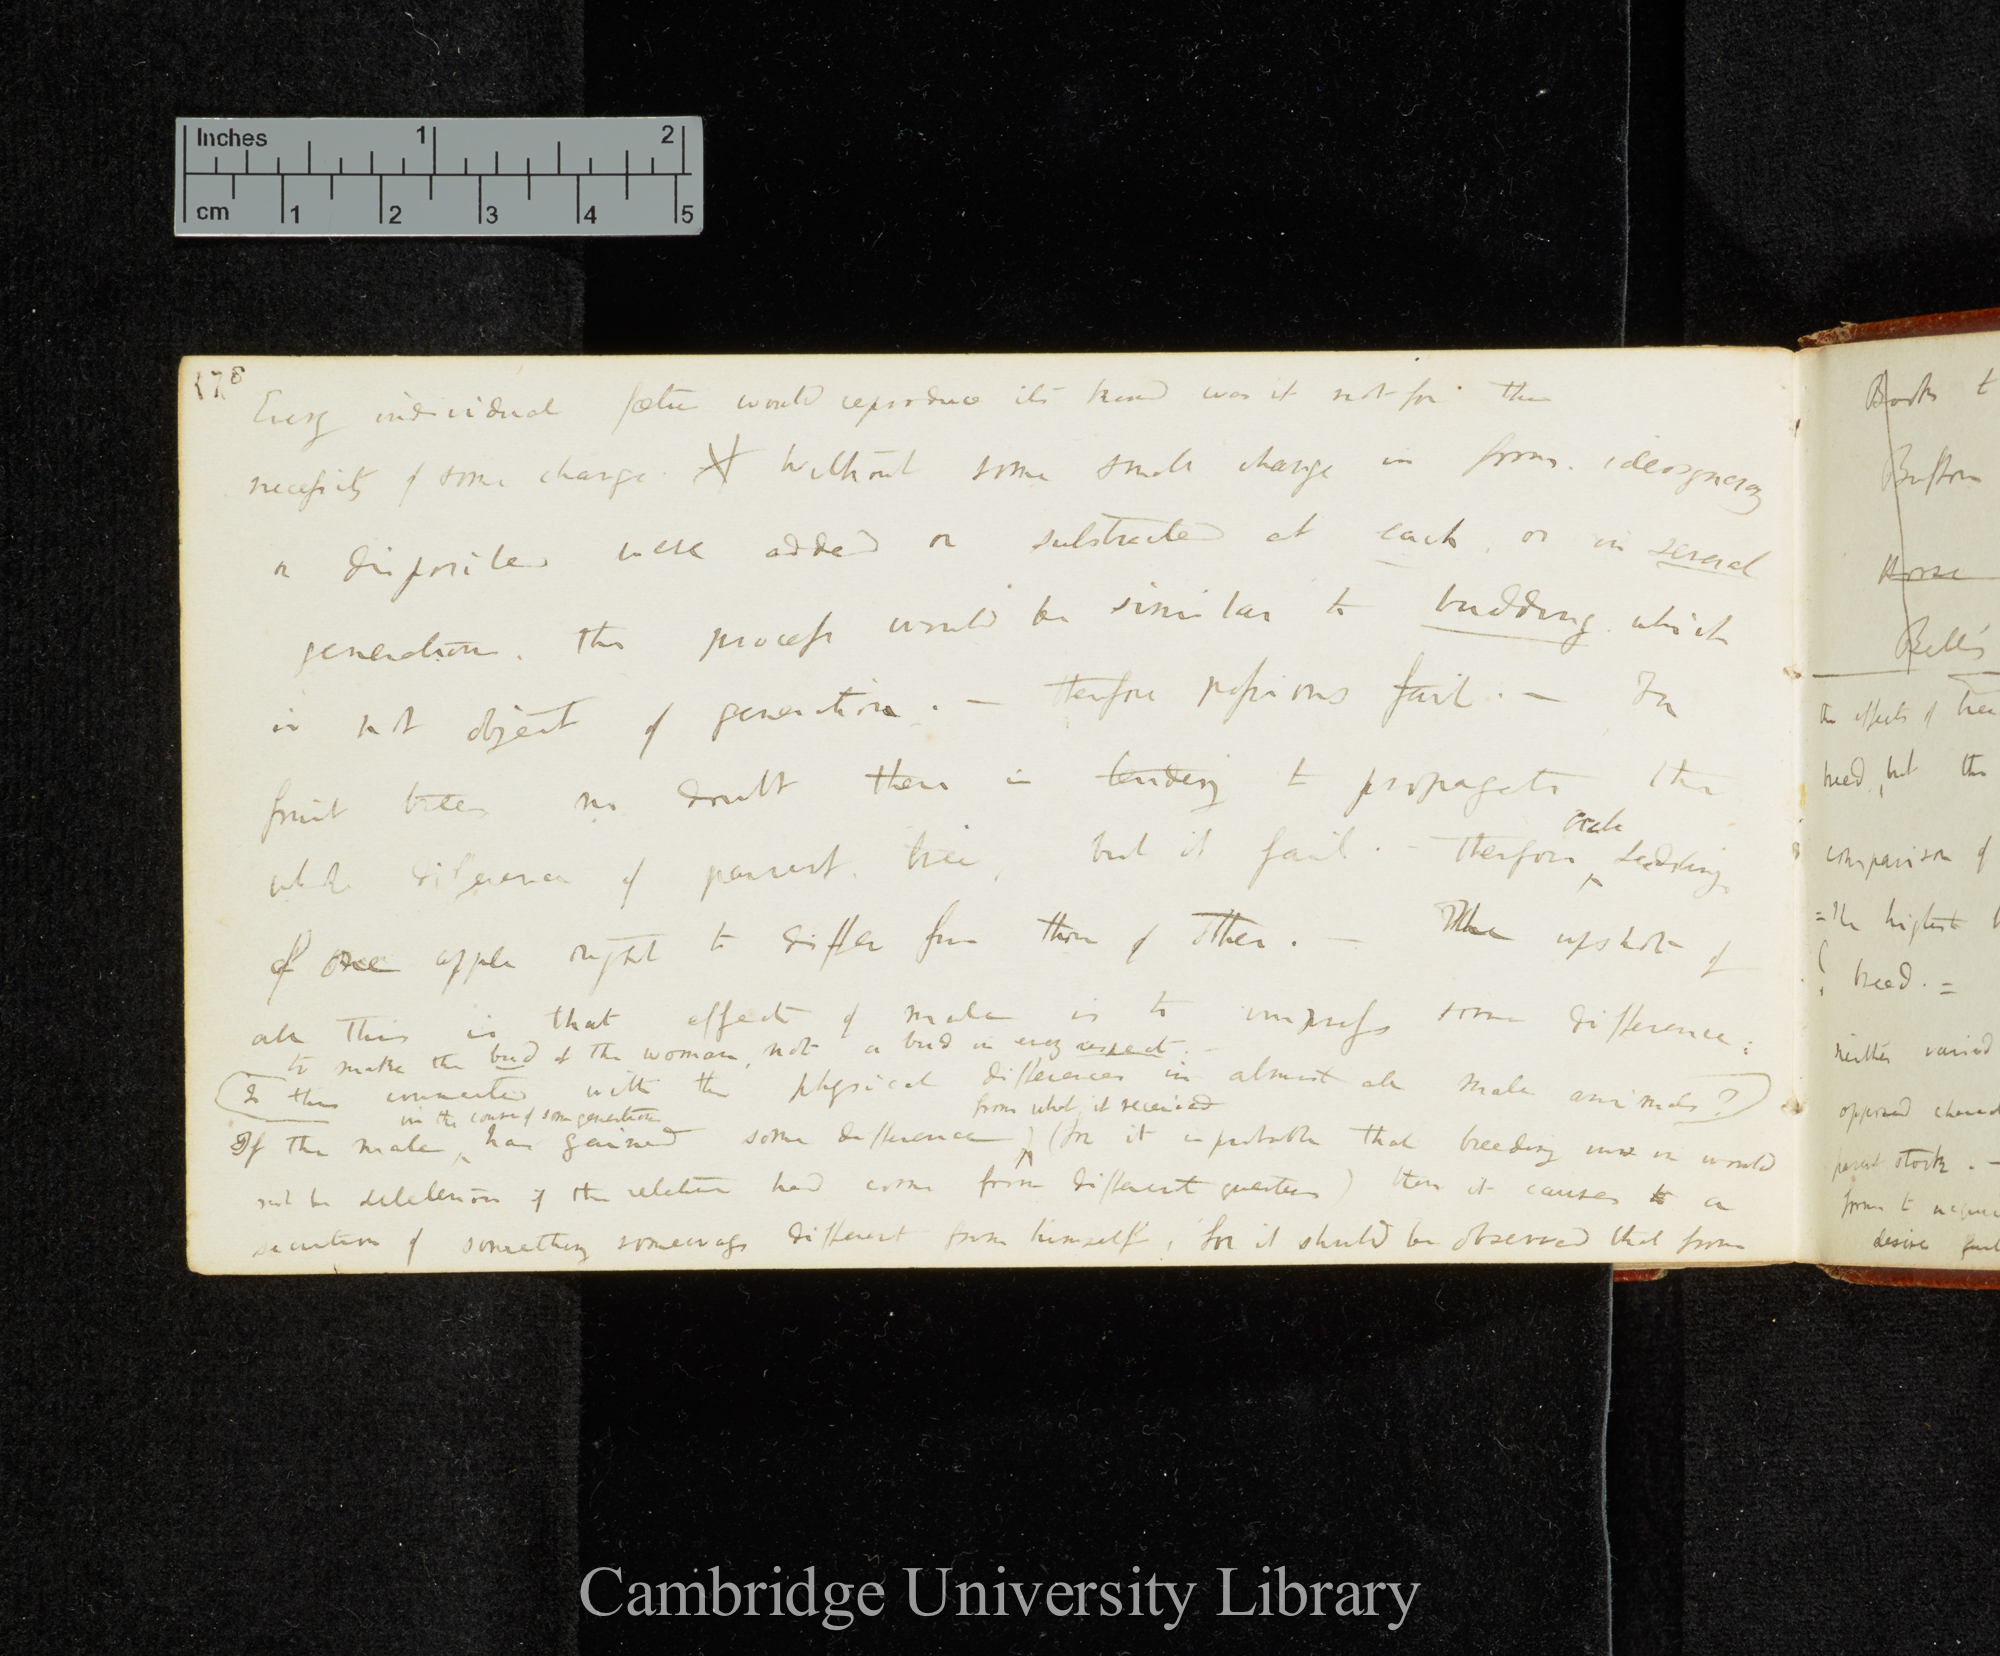 Inches 1 2
cm 1 2 3 4 5
178
Every individual fœtus would reproduce its kind was it not for the
necessity of some change. X Without some small change in form. ideosyncracy
or disposition were added or substracted at each, or in several
generations, the process would be similar to budding which
is not object of generation. — therefore passions fail. — In
fruit trees no doubt there is tending to propagate the
whole difference of parent tree, but it fail. — therefore each seedling
of one apple ought to differ from those of other. — The upshot of
all this is that effect of male is to impress some difference;
to make the bud of the woman, not a bud in every respect. —
(Is this connected with the physical differences in almost all male animals?)
in the course of some generation from what it received
If the male has gained some difference, (for it is probable that breeding in & in would
not be deleterious if the relation had come from different quarters) then it causes to a
secretion of something someways different from himself, for it should be observed that from
Books t
Buffon
Horse
Bell's
the effects of
breed, but the
comparison of
= The highest
breed. =
neither varied
opposed
parent stock. —
form to
desire
Cambridge University Library